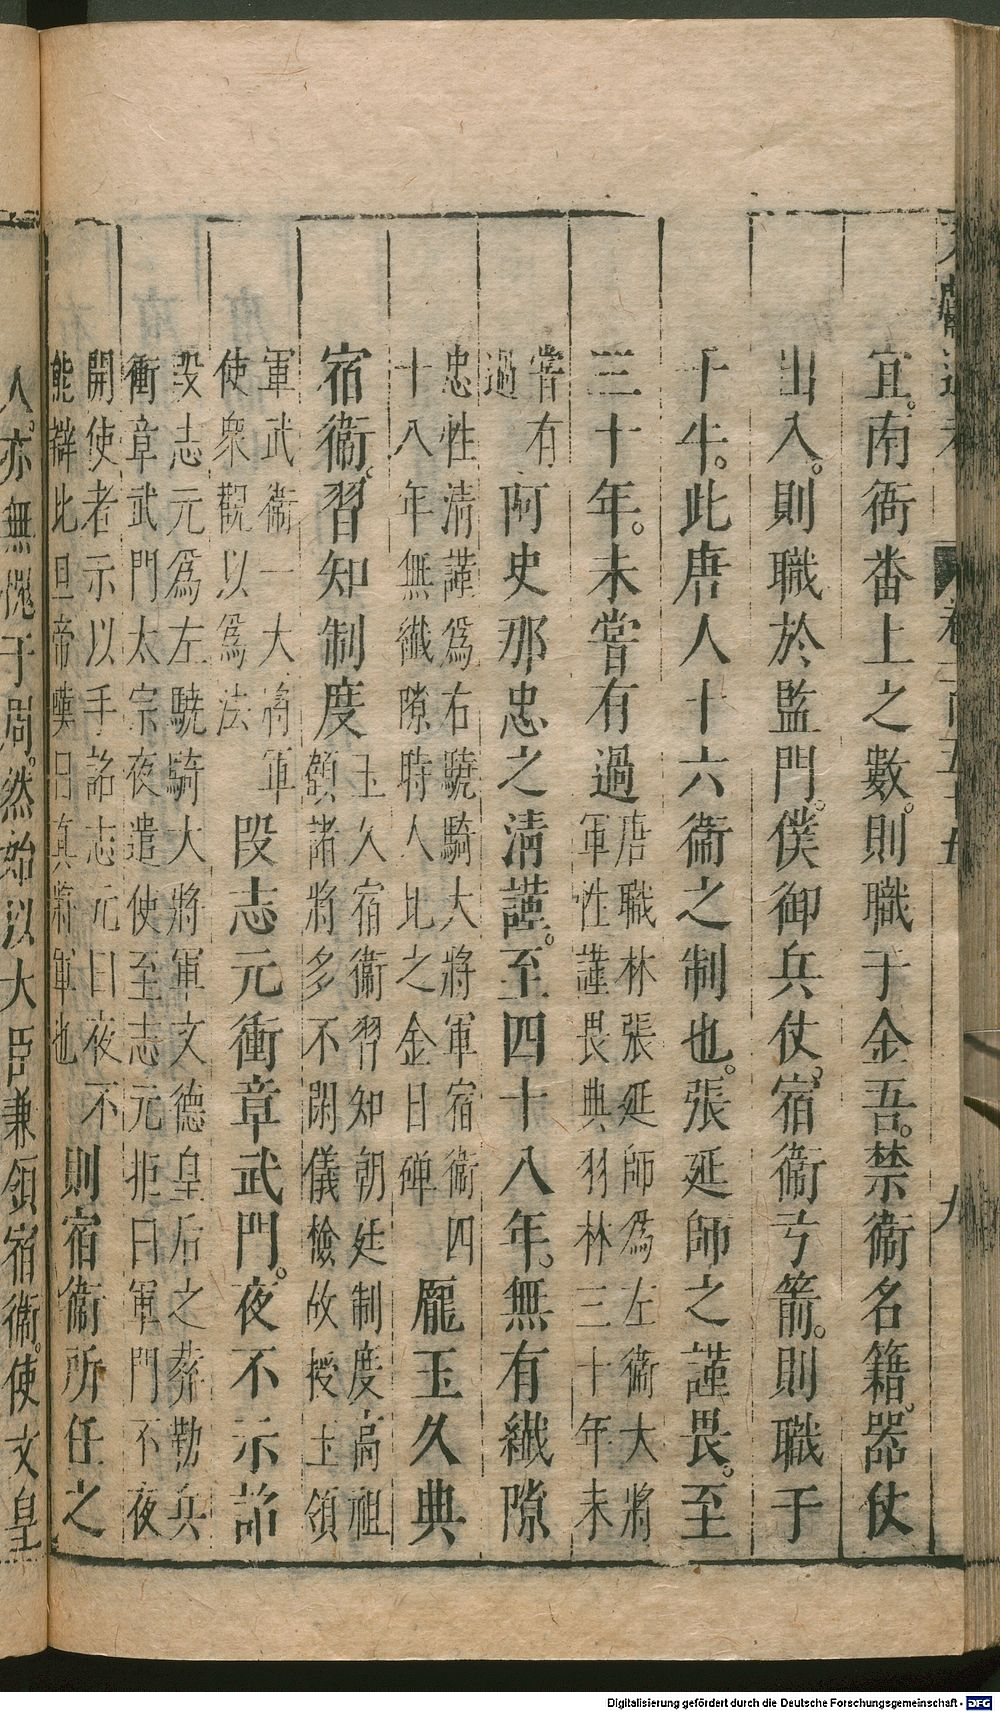 宜。南衙番上之數。則職于金吾。禁衛名籍。器仗
出入。則職於監門。僕御兵仗。宿衛弓箭。則職于
千牛。此唐人十六衛之制也。張延師之謹畏。至
三十年。未嘗有過唐職林張延師爲左衛大將
軍性謹畏典羽林三十年未
嘗有
過
阿史那忠之清謹。至四十八年。無有纎隙
忠性清謹爲右驍騎大將軍宿衛四
十八年無纎隙時人比之金日磾
龎玉久典
宿衛。習知制度玉久宿衛習知朝廷制度高祖
顧諸將多不閑儀檢故授玉領
軍武衛一大將軍
使衆觀以爲法
段志元衝章武門。夜不示詔
段志元爲左驍騎大將軍文德皇后之葬勒兵
衝章武門太宗夜遣使至志元拒曰軍門不夜
開使者示以手詔志元曰夜不
能辯比旦帝嘆曰真將軍也
則宿衛所任之
人。亦無愧于周。然始以大臣兼領宿衛。使文皇
Digitalisierung gefördert durch die Deutsche Forschungsgemeinschaft - DFG